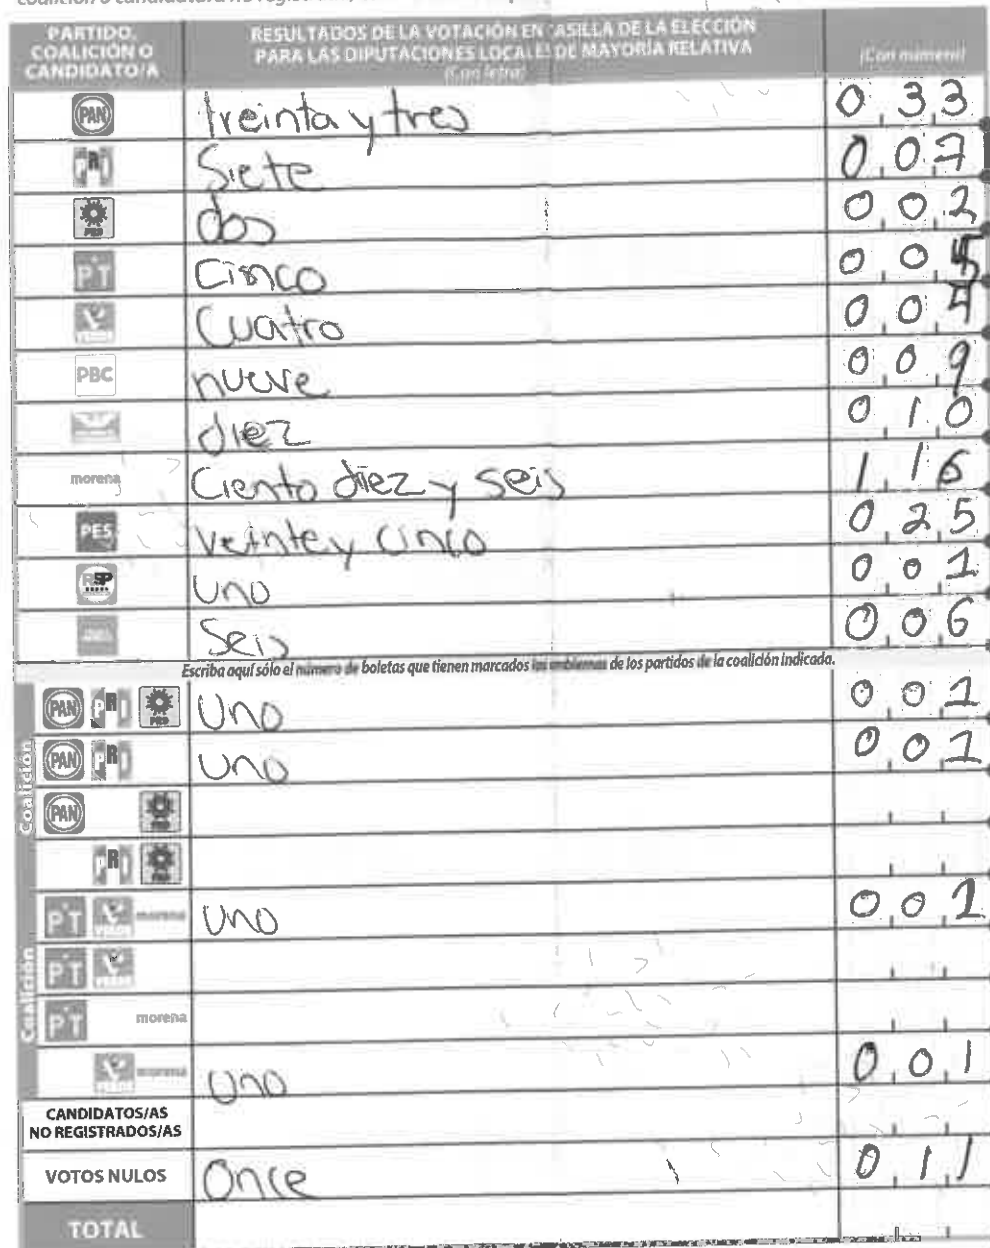 PARTIDO, COALICIÓN O CANDIDATO/A
RESULTADOS DE LA VOTACIÓN EN CASILLA DE LA ELECCIÓN PARA LAS DIPUTACIONES LOCALES DE MAYORÍA RELATIVA
(Con letra)
(Con número)
PAN treinta y tres 0 3 3
PRI Siete 0 0 7
PRD dos 0 0 2
PT Cinco 0 0 5
VERDE Cuatro 0 0 4
PBC nueve 0 0 9
diez 0 1 0
morena Ciento diez y seis 1 1 6
PES veinte y cinco 0 2 5
RSP uno 0 0 1
Seis 0 0 6
Escriba aquí sólo el número de boletas que tienen marcados los emblemas de los partidos de la coalición indicada.
Coalición
PAN PRI PRD Uno 0 0 1
PAN PRI uno 0 0 1
PAN PRD
PRI PRD
Coalición
PT VERDE morena uno 0 0 1
PT VERDE
PT morena
VERDE morena uno 0 0 1
CANDIDATOS/AS NO REGISTRADOS/AS
VOTOS NULOS Once 0 1 1
TOTAL